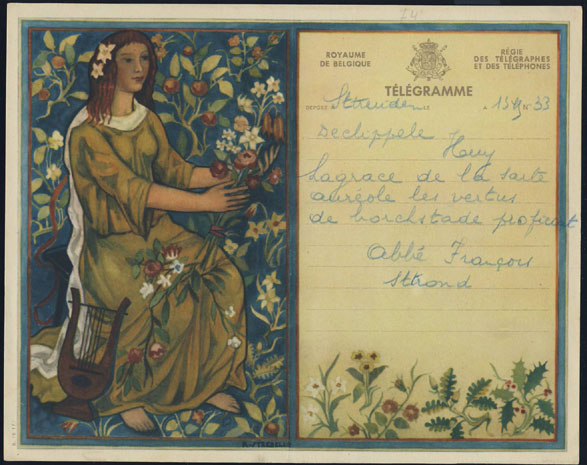 ROYAUME
DE BELGIQUE
RÉGIE
DES TÉLÉGRAPHES
ET DES TÉLÉPHONES
TÉLÉGRAMME
DÉPOSÉ A LE A N° 33
Declippele Huy
Lagrace de la sarte
auréole les vertus
de borchstade profirat
Abbé François
Strond